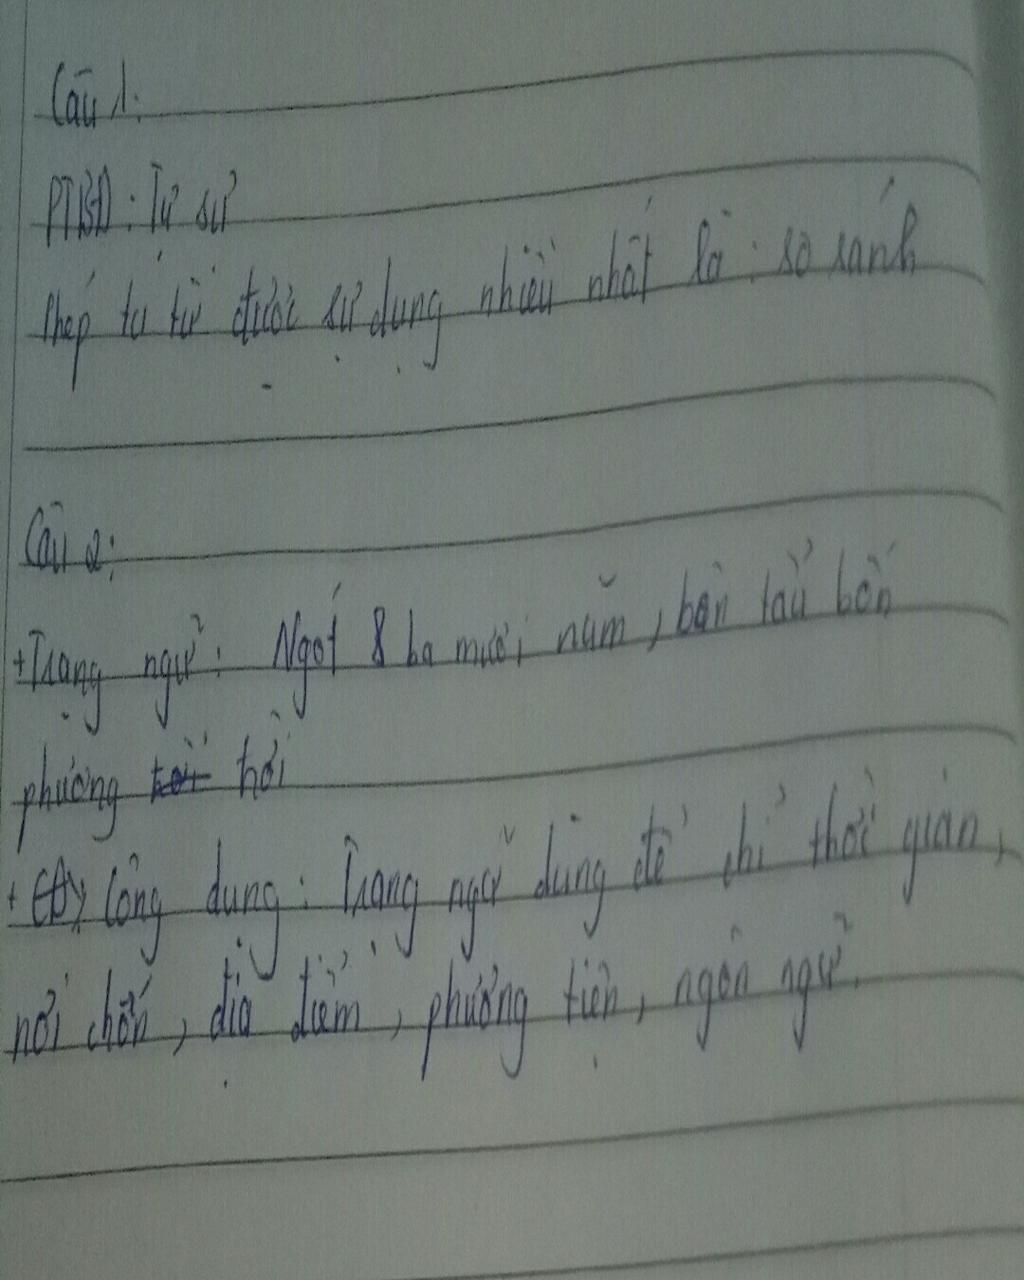 Câu 1:
PTBĐ: Tự sự
Phép tu từ được sử dụng nhiều nhất là: so sánh
Câu 2:
+Trạng ngữ: Ngót 8 ba mươi năm, bôn tẩu bốn
phương tời hời
+ Công dụng: Trạng ngữ dùng để chỉ thời gian,
nơi chốn, địa điểm, phương tiện, ngôn ngữ.